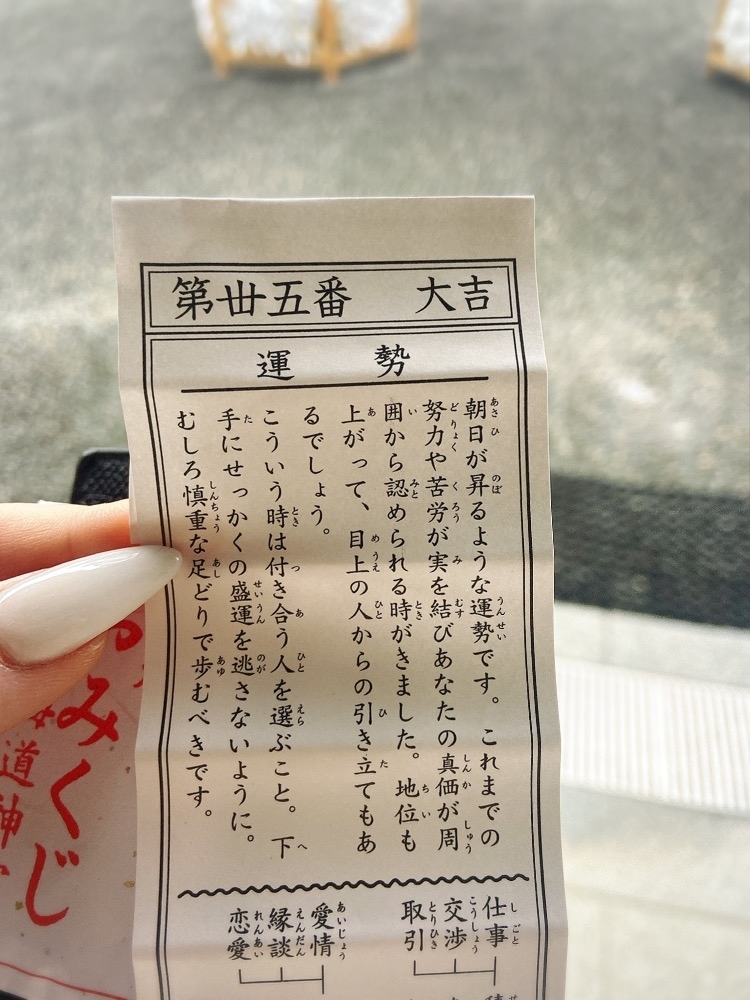 第丗五番　大吉
運勢
朝日が昇るような運勢です。これまでの
努力や苦労が実を結びあなたの真価が周
囲から認められる時がきました。地位も
上がって、目上の人からの引き立てもあ
るでしょう。
こういう時は付き合う人を選ぶこと。下
手にせっかくの盛運を逃さないように。
むしろ慎重な足どりで歩むべきです。
仕事
交渉
取引
愛情
縁談
恋愛
みくじ
道神